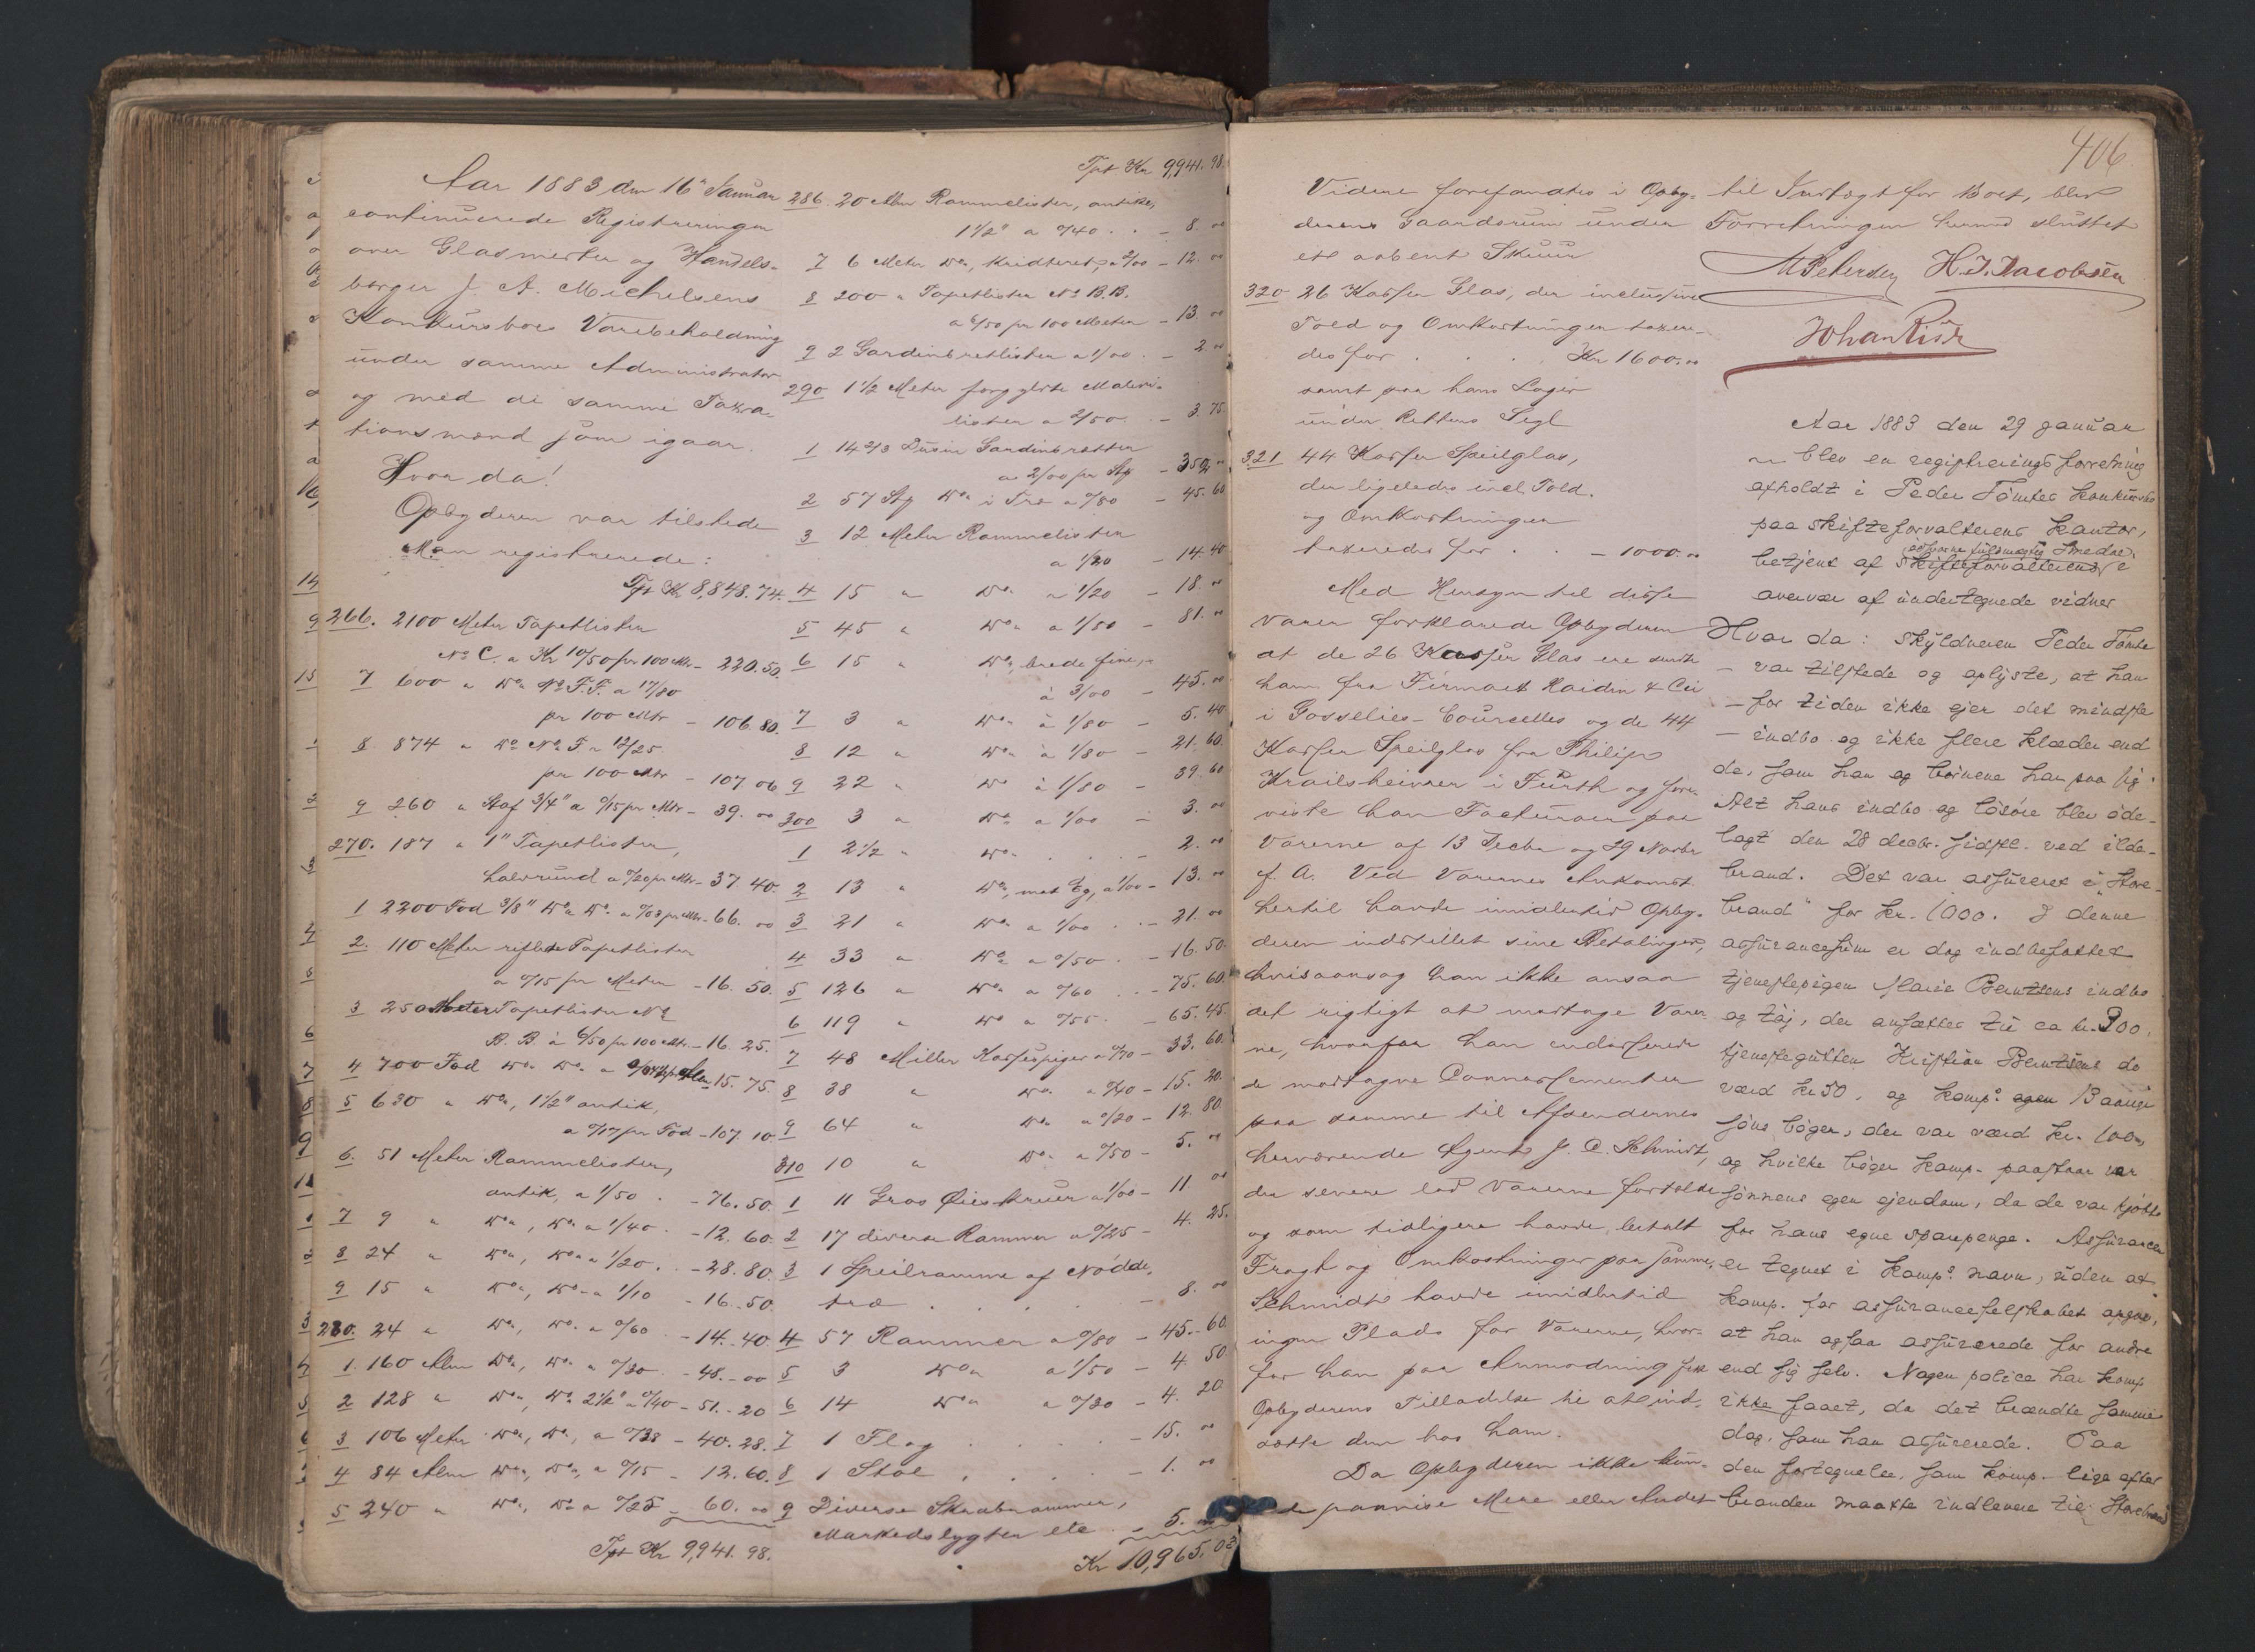 Aar 1883 den 16de Januar
continuerede Registreringen
over Glasmester og Handels-
borger J. A. Michelsens
Konkursboes Varebeholdning
under samme Administrator
og med de samme Taxa-
tionsmænd som igaar.
Hvor da!
Opbyderen var tilstede
Man registrerede:
Tpt Kr 8,848.74.
266. 2100 Meter Tapetlister
No C. a Kr 10/50 pr 100 Mtr - 220.50
7 600 " Do No F.F. a 17/80
pr 100 Mtr - 106.80.
8 874 " Do No F a 12/25
pr 100 Mtr - 107.06
9 260 " Staf 3/4" a 0/15 pr Mtr - 39.00
270. 187 " 1" Tapetlister,
halvrund a 0/20 pr Mtr - 37.40.
1 2200 Fod 3/8" Do Do a 0/03 pr - 66.00
2. 110 Meter riflede Tapetlister
a 0/15 pr Meter - 16.50.
3 250 Meter Tapetlister No
B.B. à 6/50 pr 100 Mtr. - 16.25.
4 700 Fod Do Do a 15.75
5 630 " Do, 1 1/2" antik,
a 0/17 pr Fod - 107.10
6. 51 Meter Rammelister,
antik, a 1/50 . - 76.50.
7 9 " Do, Do a 1/40 . - 12.60.
8 24 " Do, Do a 1/20 . - 28.80.
9 15 " Do, Do a 1/10 - 16.50.
280. 24 " Do, Do a 0/60 - 14.40
1. 160 Alen Do, Do a 0/30 - 48.00
2 128 " Do, Do 2 1/2" a 0/40 - 51.20
3 106 Meter Do, Do, a 0/38 - 40.28.
4 84 Alen Do, Do, a 0/15 - 12.60.
5 240 " Do, Do a 0/25 - 60.00
Tpt Kr 9,941.98.
Tpt Kr 9,941.98.
286. 20 Alen Rammelister, antike,
1 1/2" a 0/40 . . - 8.00
7 6 Meter Do, Kridteret, a 2/00 - 12.00
8 200 " Tapetlister No B.B.
a 6/50 pr 100 Meter - 13.00
9 2 Gardinbretlister a 1/00 . - 2.00
290 1 1/2 Meter forgyldte Maleri-
lister a 2/50 . - 3.75
1 14 2/3 Dusin Gardinbretter
a 2/00 pr Stk - 352.00
2 57 Stk Do i Træ a 0/80 - 45.60
3 12 Meter Rammelister
a 1/20 - 14.40
4 15 " Do a 1/20 - 18.00
5 45 " Do a 1/80 - 81.00
6 15 " Do, brede fine,
à 3/00 - 45.00
7 3 " Do à 1/80 - 5.40
8 12 " Do à 1/80 - 21.60
9 22 " Do à 1/80 - 39.60
300 3 " Do a 1/00 - 3.00
1 2 1/2 " Do . . . - 2.00
2 13 " Do, mat Eg, a 1/00 - 13.00
3 21 " Do a 1/00 . - 21.00
4 33 " Do a 0/50 . - 16.50
5 126 " Do a 0/60 . - 75.60
6 119 " Do a 0/55 . - 65.45
7 48 Miller Kassespiger a 0/70 - 33.60
8 38 " Do a 0/40 - 15.20
9 64 " Do a 0/20 - 12.80
310 10 " Do a 0/50 - 5.00
1 11 Gros Øieskruer a 1/00 - 11.00
2 17 diverse Rammer a 0/25 - 4.25
3 1 Speilramme af Nødde-
træ . . . . - 8.00
4 57 Rammer a 0/80 - 45.60
5 3 Do a 1/50 - 4.50
6 14 Do a 0/30 - 4.20
7 1 Flag . . . - 15.00
8 1 Stol . . . - 1.00
9 Diverse Skrabrammer,
Markedslygter etc. - 5.00
Kr 10,965.03
406.
Videre forefandtes i Opby-
derens Gaardsrum under
et aabent Skuur
320 26 Kasser Glas, der inclusive
Told og Omkostninger taxere-
des for . . . Kr 1600.00
samt paa hans Lager
under Rettens Segl
321 44 Kasser Speilglas,
der ligeledes incl Told.
og Omkostninger
taxeredes for . . - 1000.00
Med Hensyn til disse
Varer forklarede Opbyderen
at de 26 Kasser Glas ere sendte
ham fra Firmaet Haidin & Cie
i Gosselies-Courcelles og de 44
Kasser Speilglas fra Philip
Krailsheimer i Fürth og fore-
viste han Facturaer paa
Varerne af 13 Decbr og 29 Novbr
f. A. Ved Varernes Ankomst
hertil havde imidlertid Opby-
deren indstillet sine Betalinger,
hvisaarsag han ikke ansaa
det rigtigt at modtage Varer-
ne, hvorfor han endosserede
de modtagne Connossementer
paa samme til Afsendernes
herværende Agent J. C. Schmidt,
der senere lod Varerne fortolde
og som tidligere havde betalt
Fragt og Omkostninger paa samme.
Schmidt havde imidlertid
ingen Plads for Varerne, hvor-
for han paa Anmodning fik
Opbyderens Tilladelse til at ind-
sætte dem hos ham.
Da Opbyderen ikke kun-
de paavise Mere eller Andet
til Indtægt for Boet, blev
Forretningen hermed sluttet
M Petersen H. J. Jacobsen
Johan
Aar 1883 den 29 januar
blev en registreringsforretning
afholdt i Peder Tømtes konkursbo
paa skifteforvalterens kontor,
betjent af skifteforvalterens
edsvorne fuldmægtig Smedal, i
overvær af undertegnede vidner
Hvor da: skyldneren Peder Tømte
var tilstede og oplyste, at han
for tiden ikke ejer det mindste
indbo og ikke flere klæder end
de, som han og børnene har paa sig.
Alt hans indbo og løsøre blev øde-
lagt den 28 decbr. sidstl. ved ilde-
brand. Det var assureret i "Store-
brand" for kr. 1000. I denne
assurancesum er dog indbefattet
tjenestepigen Marie Berntsens indbo
og tøj, der ansættes til ca kr. 300,
tjenestegutten Kristian Berntsens do
værd kr 50, og komps 13 aarige
søns bøger, der var værd kr. 100,
og hvilke bøger komp. paastaar var
sønnens egen ejendom, da de var kjøbte
for hans egne sparepenge. Assurancen
er tegnet i komps navn, uden at
komp. for assuranceselskabet opgav,
at han ogsaa assurerede for andre
end sig selv. Nogen police har komp
ikke faaet, da det brændte samme
dag, som han assurerede. Paa
den fortegnelse, som komp. lige efter
branden maatte indlevere til Storebrand